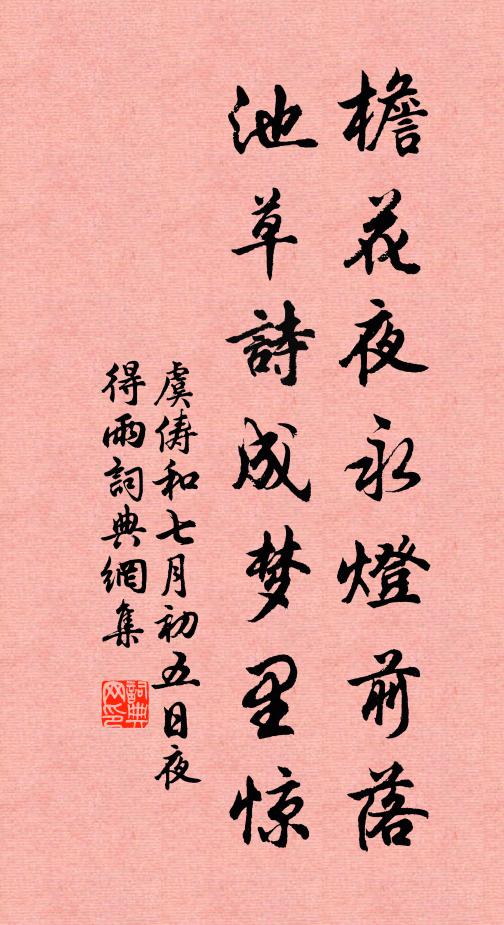 檐花夜永燈前落
池草詩成梦里惊
虞儔和七月初五日夜
得雨詞典網集
詞典网印